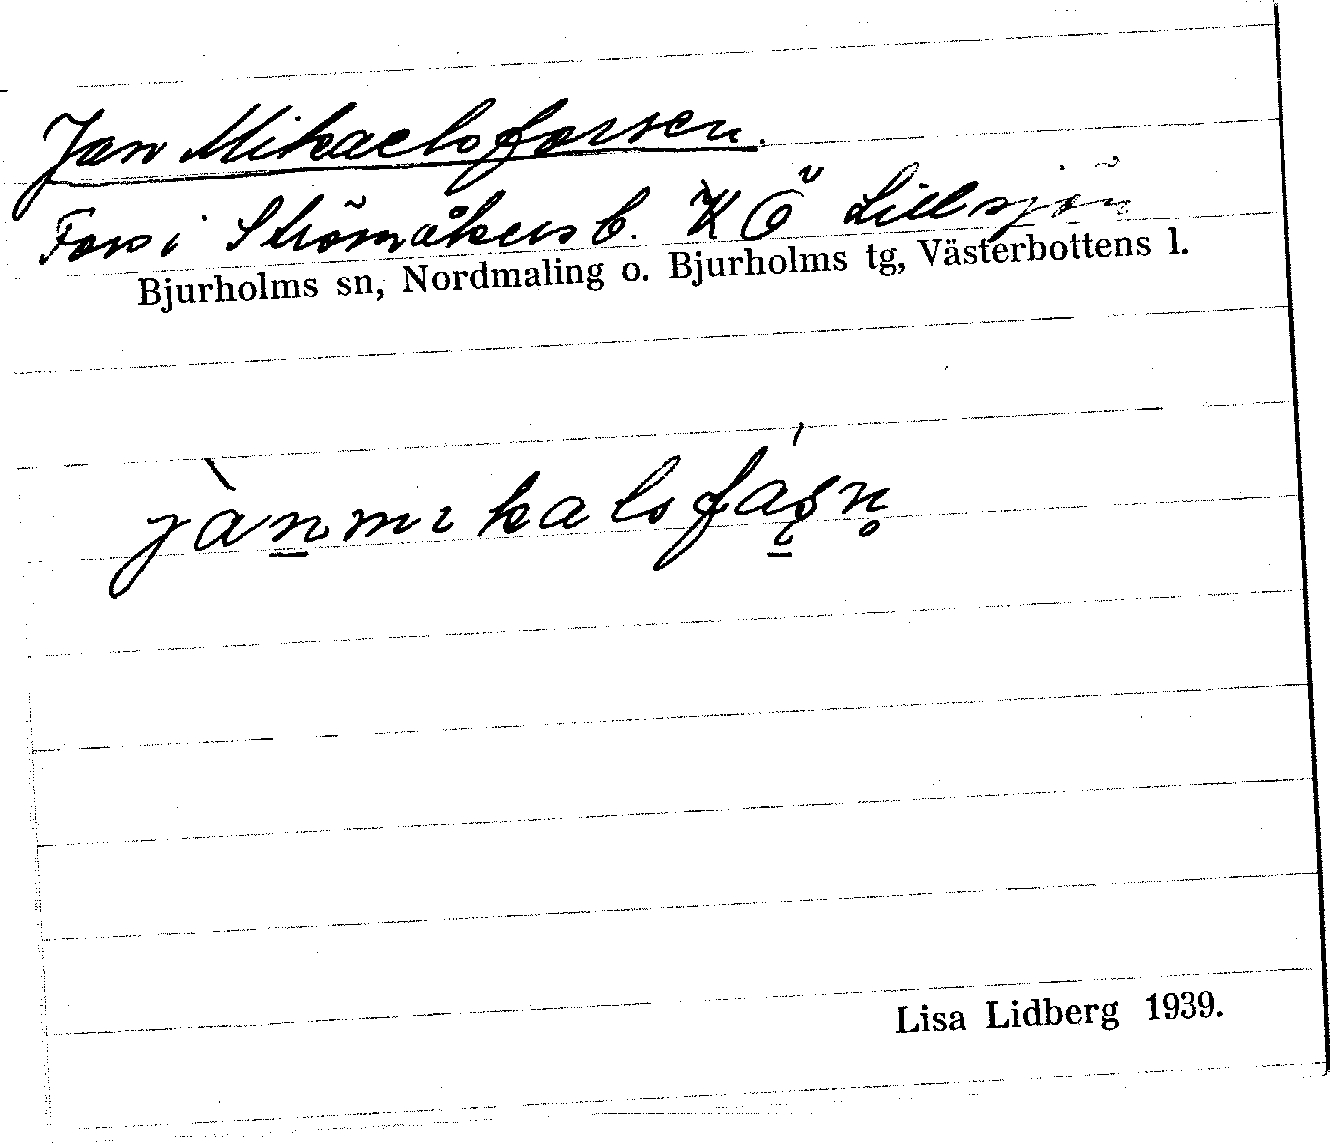 Jan Mikaelsforsen.
Fors i Strömåkers b. K Ö Lillsjön
Bjurholms sn, Nordmaling o. Bjurholms tg, Västerbottens l.
jànmikalsfásn
Lisa Lidberg 1939.